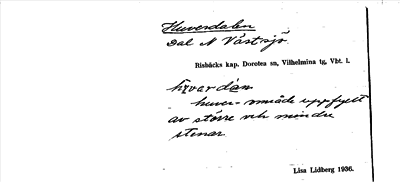 Huverdalen
Dal N Västsjö.
Risbäcks kap. Dorotea sn, Vilhelmina tg, Vbt. l.
huver-område uppfyllt
av större och mindre
stenar.
Lisa Lidberg 1936.